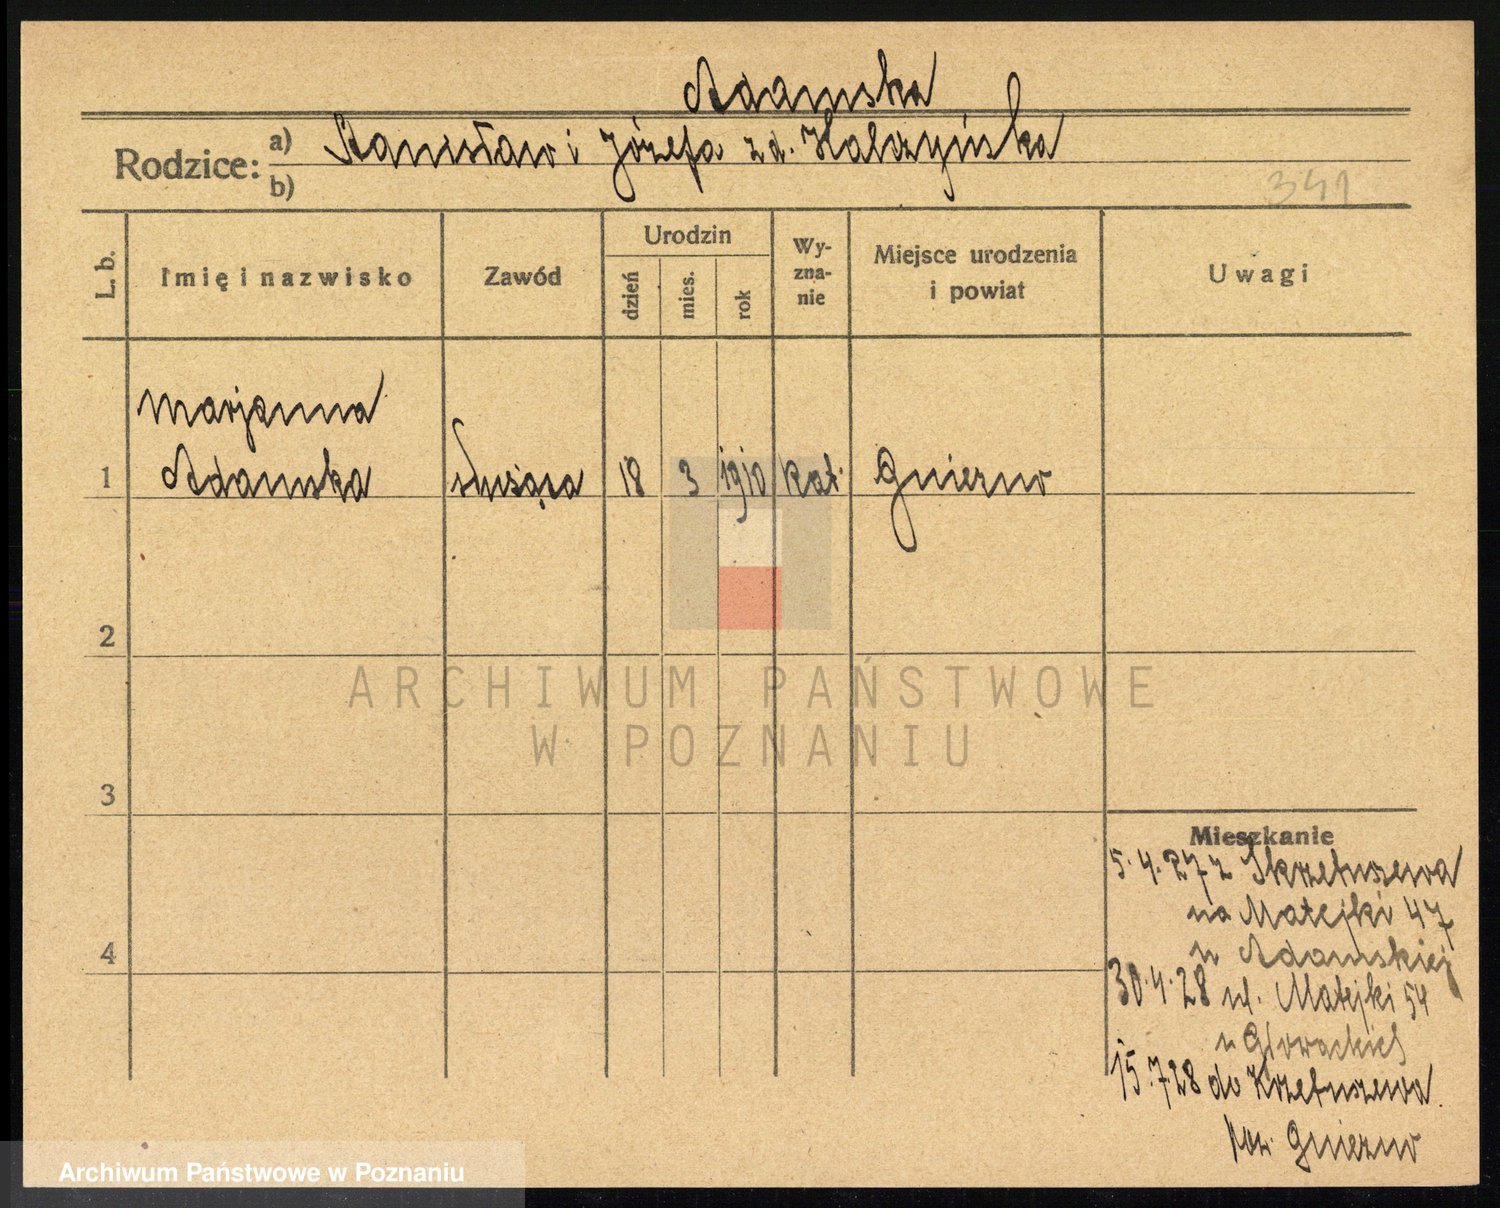 Adamska
Rodzice: a) Stanisław i Józefa z d. Kalczyńska
b)
341
L. b.
Imię i nazwisko
Zawód
Urodzin
dzień
mies.
rok
Wy-
zna-
nie
Miejsce urodzenia
i powiat
Uwagi
Marjanna
1 Adamska służąca 18 3 1910 kat. Gniezno
2
3
4
ARCHIWUM PAŃSTWOWE
W POZNANIU
Mieszkanie
5.4.27 z Skrzetuszewa
na Matejki 47
u Adamskiej
30.4.28 ul. Matejki 54
u Głowackich
15.7.28 do Krzetuszewa
pow. Gniezno
Archiwum Państwowe w Poznaniu